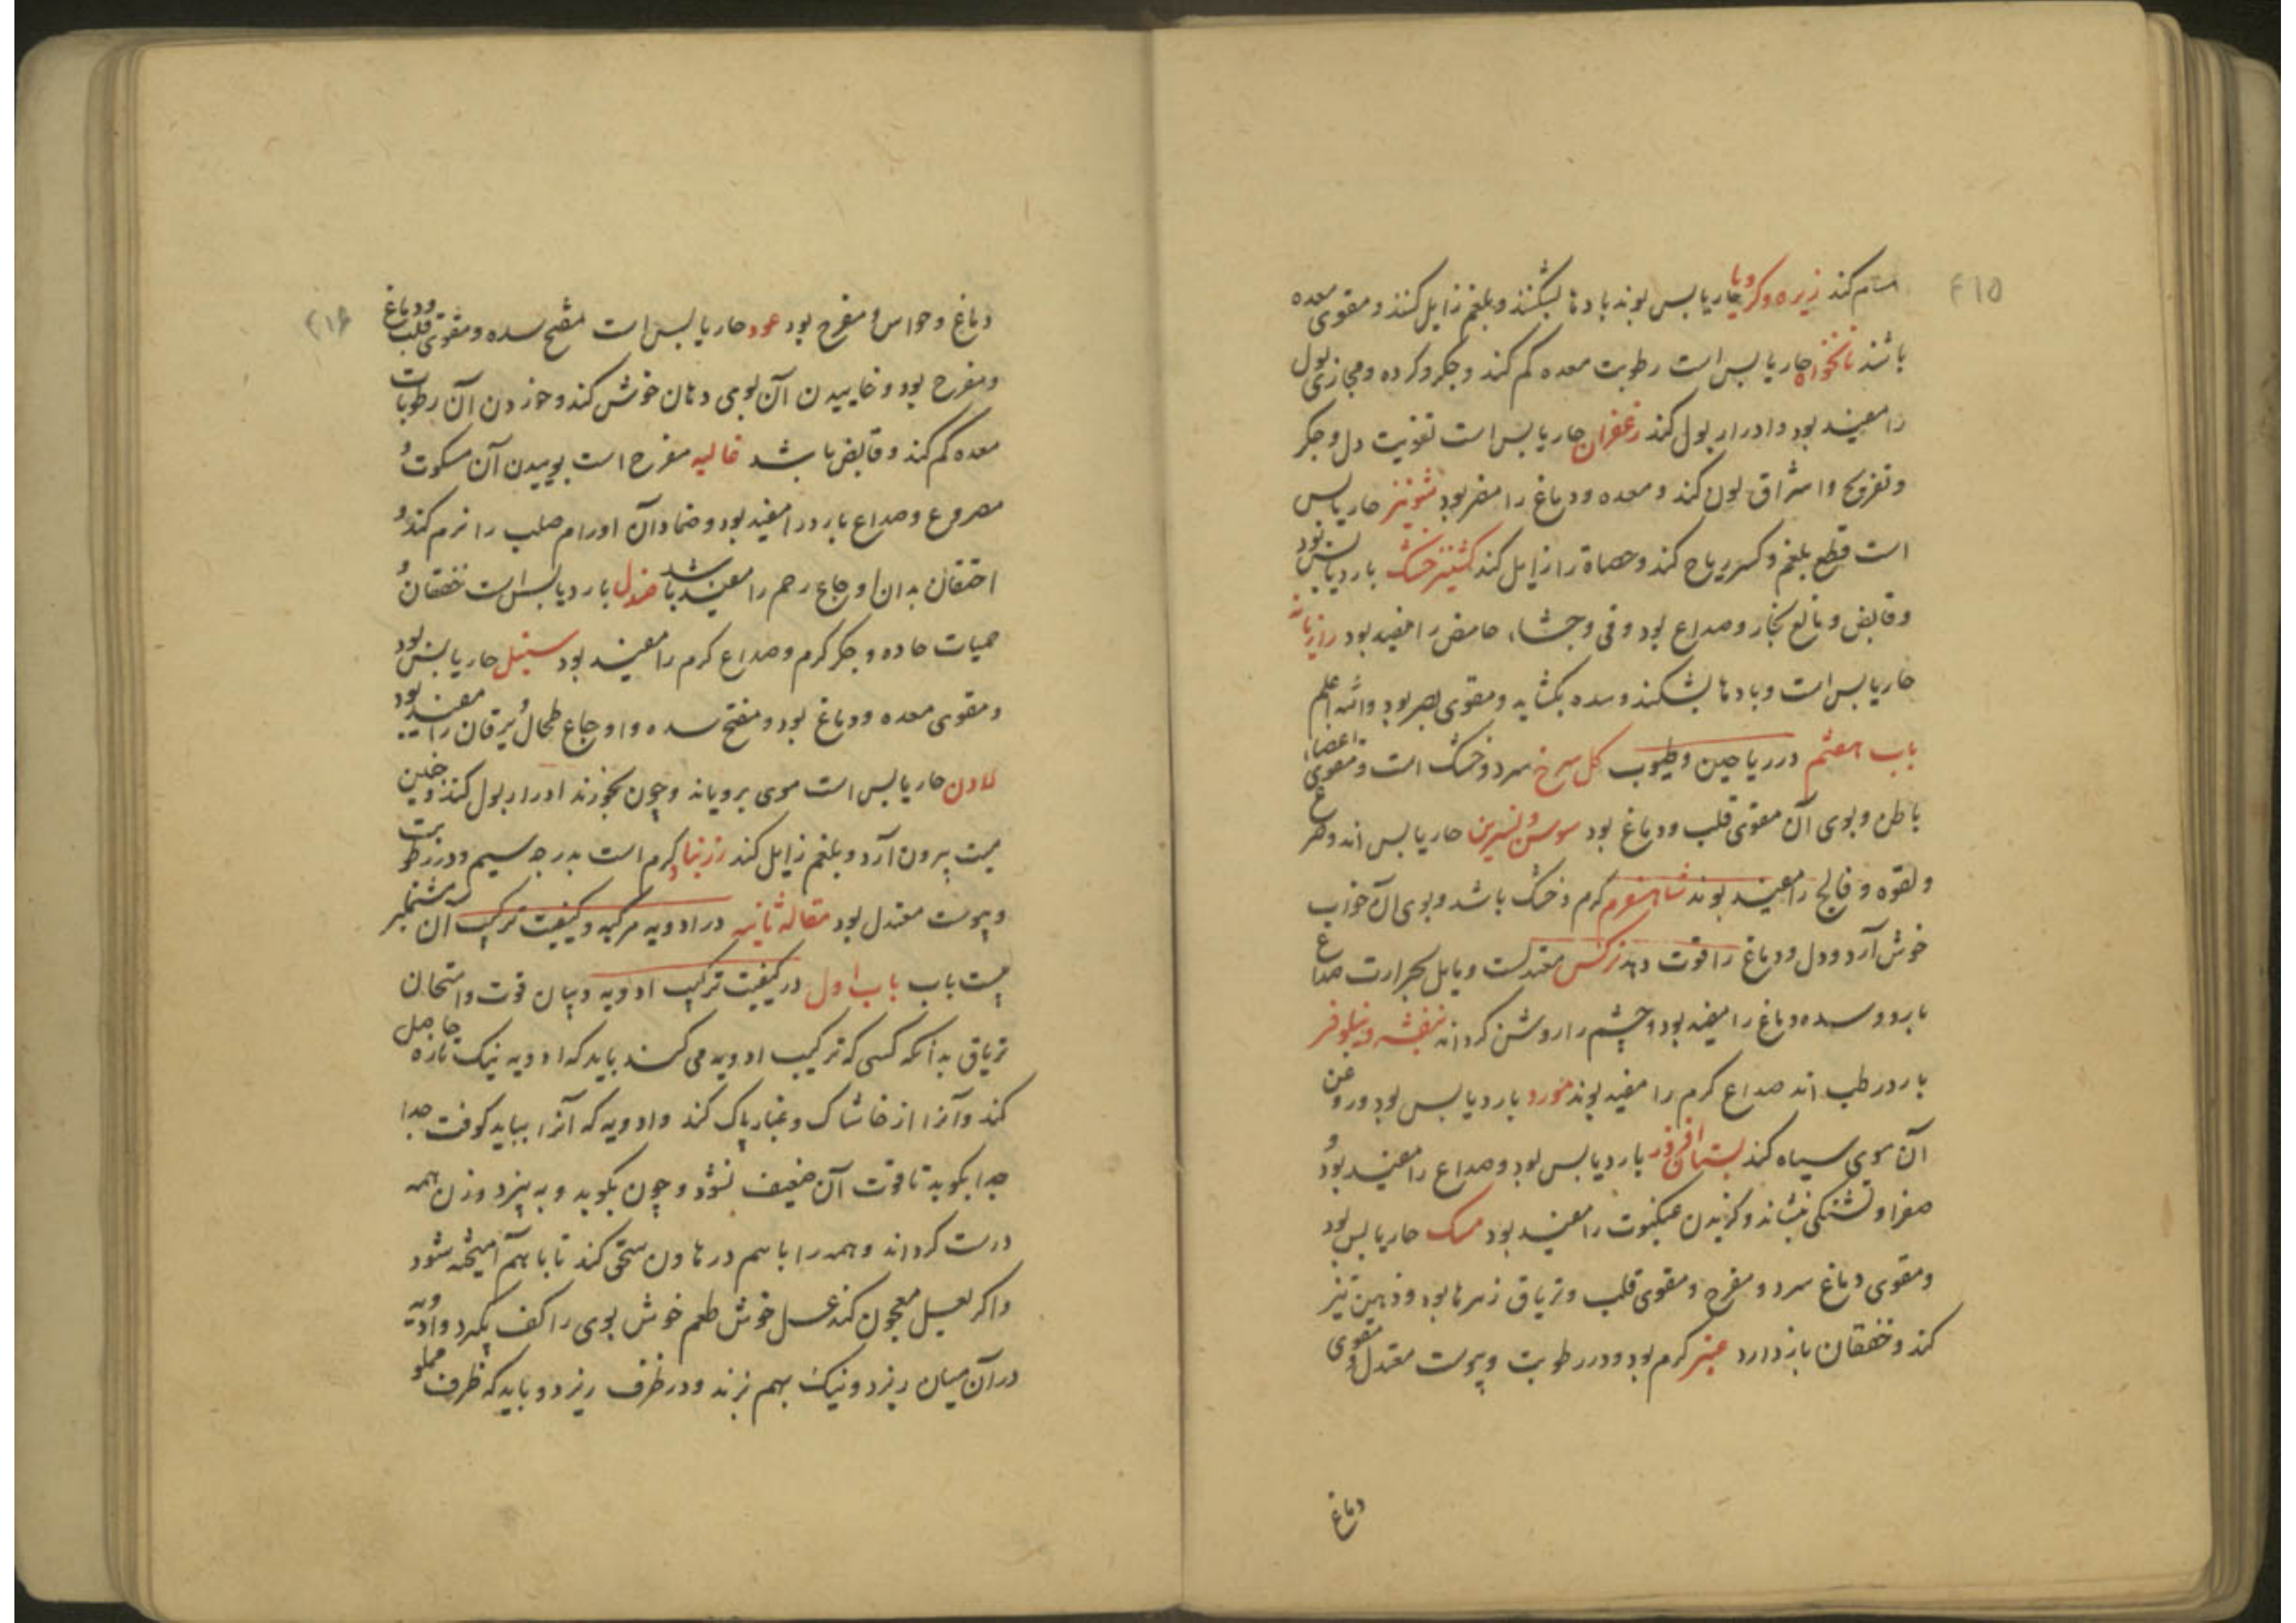 ۴۱۵
کند زیره و کرویا حار یابس بوند بادها بشکنند و بلغم زایل کنند و مقوی معده
باشند نانخواه حار یابس است رطوبت معده کم کند و جگر و کرده و مجاری بول
را مفید بود و ادرار بول کند زعفران حار یابس است تقویت دل و جگر
و تفریح و اشراق لون کند و معده و دماغ را مضر بود شونیز حار یابس
است قطع بلغم و کسر ریاح کند و حصاة را زایل کند کشنیز خشک بارد یابس بود
و قابض و مانع بخار و صداع بود و قی و جشاء حامض را مفید بود رازیانه
حار یابس است و بادها بشکند و سده بکشاید و مقوی بصر بود والله اعلم
باب هفتم در ریاحین و طیوب کل سرخ سرد و خشک است و مقوی اعضاء
باطن و بوی آن مقوی قلب و دماغ بود سوسن و نسرین حار یابس اند و صرع
و لقوه و فالج را مفید بوند شاهسفرم کرم و خشک باشد و بوی آن خواب
خوش آرد و دل و دماغ را قوت دهد نرکس معتدلست و مایل بحرارت صداع
بارد و سده دماغ را مفید بود و چشم را روشن کرداند بنفشه و نیلوفر
بارد رطب اند صداع کرم را مفید بوند مورد بارد یابس بود و روغن
آن موی سیاه کند بستان افروز بارد یابس بود و صداع را مفید بود و
صفرا و تشنکی بنشاند و کزیدن عنکبوت را مفید بود مسک حار یابس بود
و مقوی دماغ سرد و مفرح و مقوی قلب و تریاق زهرها بود و ذهن تیز
کند و خفقان باز دارد عنبر کرم بود و در رطوبت و یبوست معتدل و مقوی
دماغ
۴۱۶
دماغ و حواس و مفرح بود عود حار یابس است مفتح سده و مقوی قلب و دماغ
و مفرح بود و خاییدن آن بوی دهان خوش کند و خوردن آن رطوبات
معده کم کند و قابض باشد غالیه مفرح است بوییدن آن مسکوت و
مصروع و صداع بارد را مفید بود و ضماد آن اورام صلب را نرم کند و
احتقان بدان اوجاع رحم را مفید باشد صندل بارد یابس است خفقان و
حمیات حاده و جگر کرم و صداع کرم را مفید بود سنبل حار یابس بود
و مقوی معده و دماغ بود و مفتح سده و اوجاع طحال و یرقان را مفید بود
لادن حار یابس است موی برویاند و چون بخورند ادرار بول کند و جنین
میت بیرون آرد و بلغم زایل کند زرنباد کرم است بدرجه سیم و در رطوبت
و یبوست معتدل بود مقاله ثانیه در ادویه مرکبه و کیفیت ترکیب آن مشتمل بر
بیست باب باب اول در کیفیت ترکیب ادویه و بیان قوت و امتحان
تریاق بدانکه کسی که ترکیب ادویه می کند باید که ادویه نیک تازه حاصل
کند و آنرا از خاشاک و غبار پاک کند و ادویه که آنرا بباید کوفت جدا
جدا بکوبد تا قوت آن ضعیف نشود و چون بکوبد و به بیزد وزن همه
درست کرداند و همه را باسم در هاون سحق کند تا با هم آمیخته شود
و اکر بعسل معجون کند عسل خوش طعم خوش بوی را کف بگیرد و ادویه
در آن میان ریزد و نیک بهم بزند و در ظرف ریزد و باید که ظرف مملو